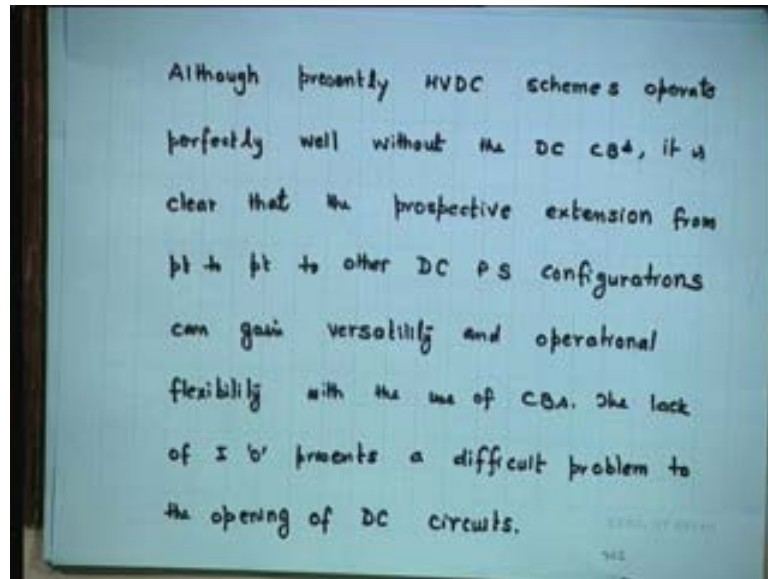 Although presently HVDC schemes operate
perfectly well without the DC CBs, it is
clear that the prospective extension from
pt to pt to other DC PS configurations
can gain versatility and operational
flexibility with the use of CBs. The lack
of I 'o' presents a difficult problem to
the opening of DC circuits.